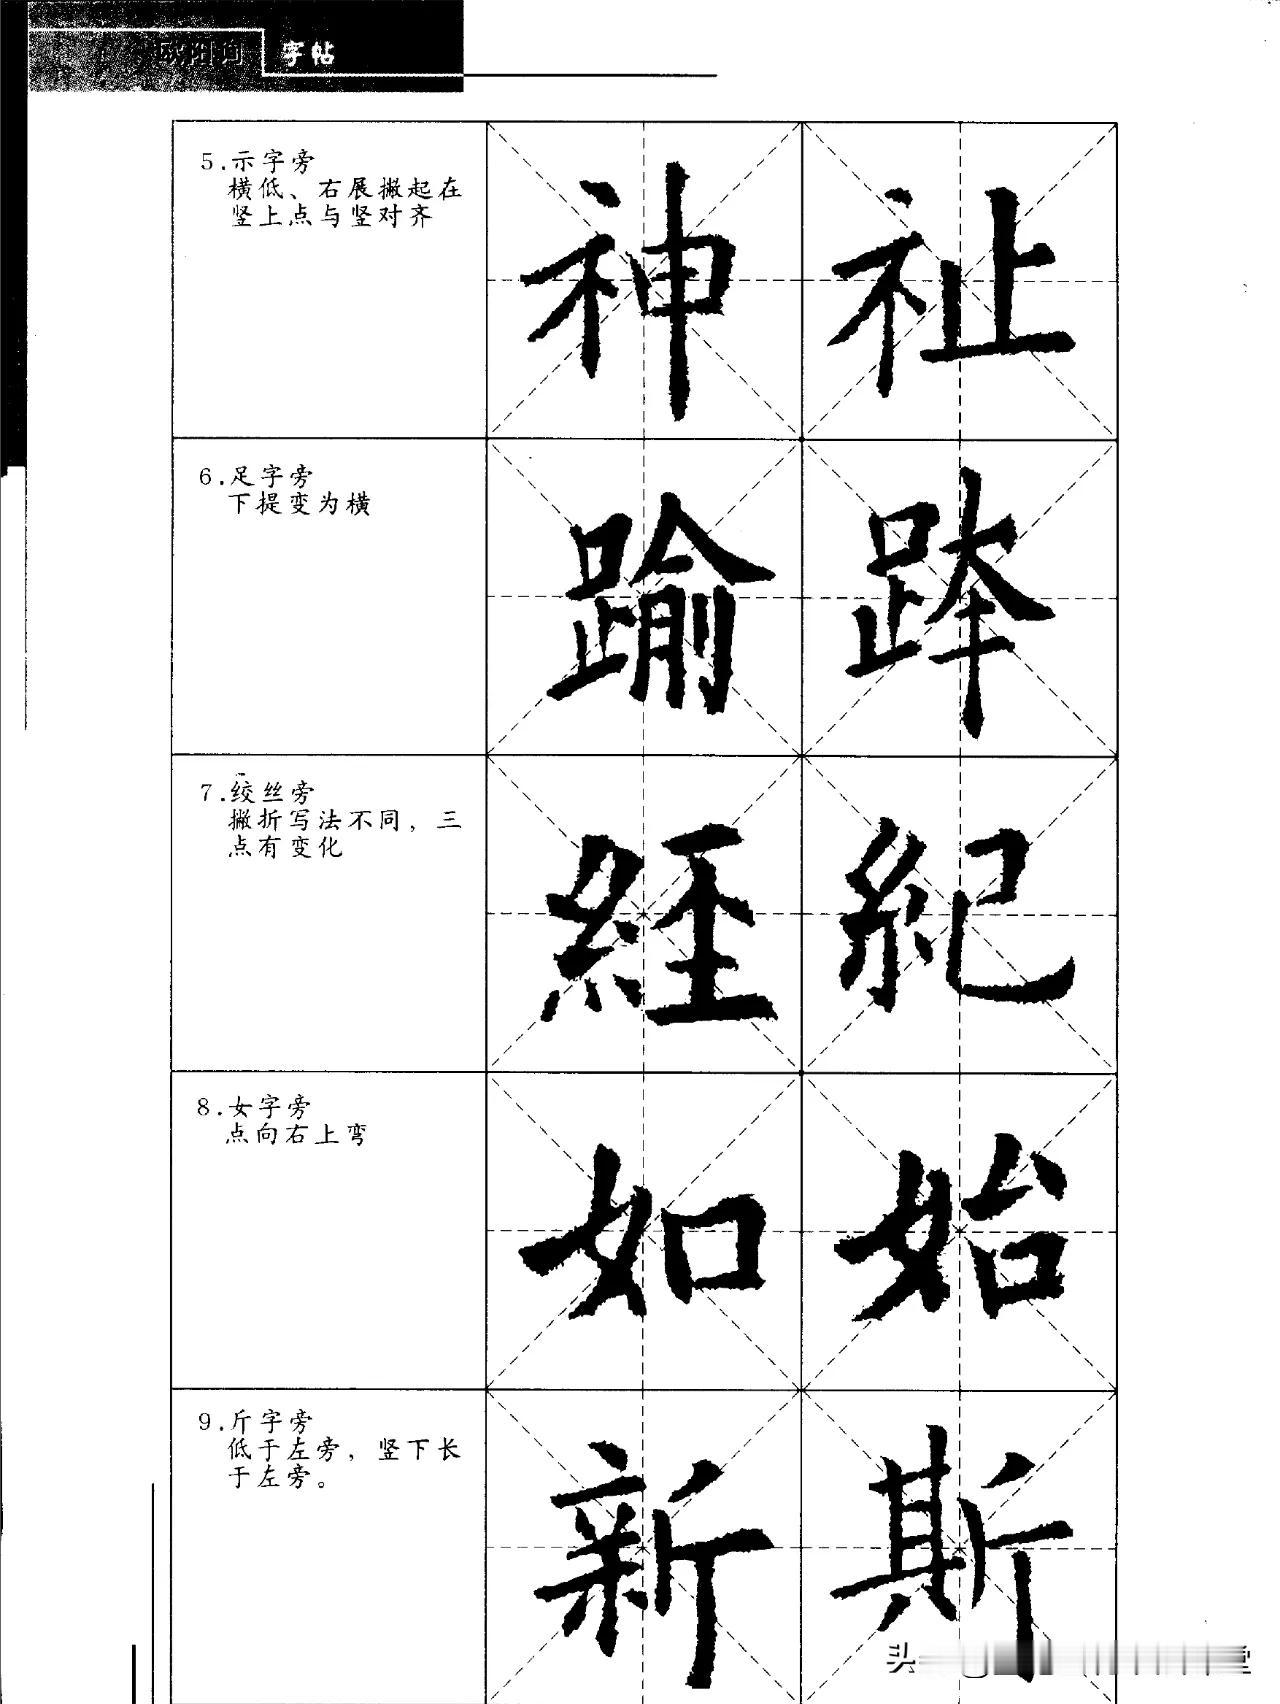 欧阳询 字帖
5.示字旁
横低、右展撇起在
竖上点与竖对齐
神 祉
6.足字旁
下提变为横
踰
7.绞丝旁
撇折写法不同，三
点有变化
經 紀
8.女字旁
点向右上弯
如 始
9.斤字旁
低于左旁，竖下长
于左旁。
新 斯
头